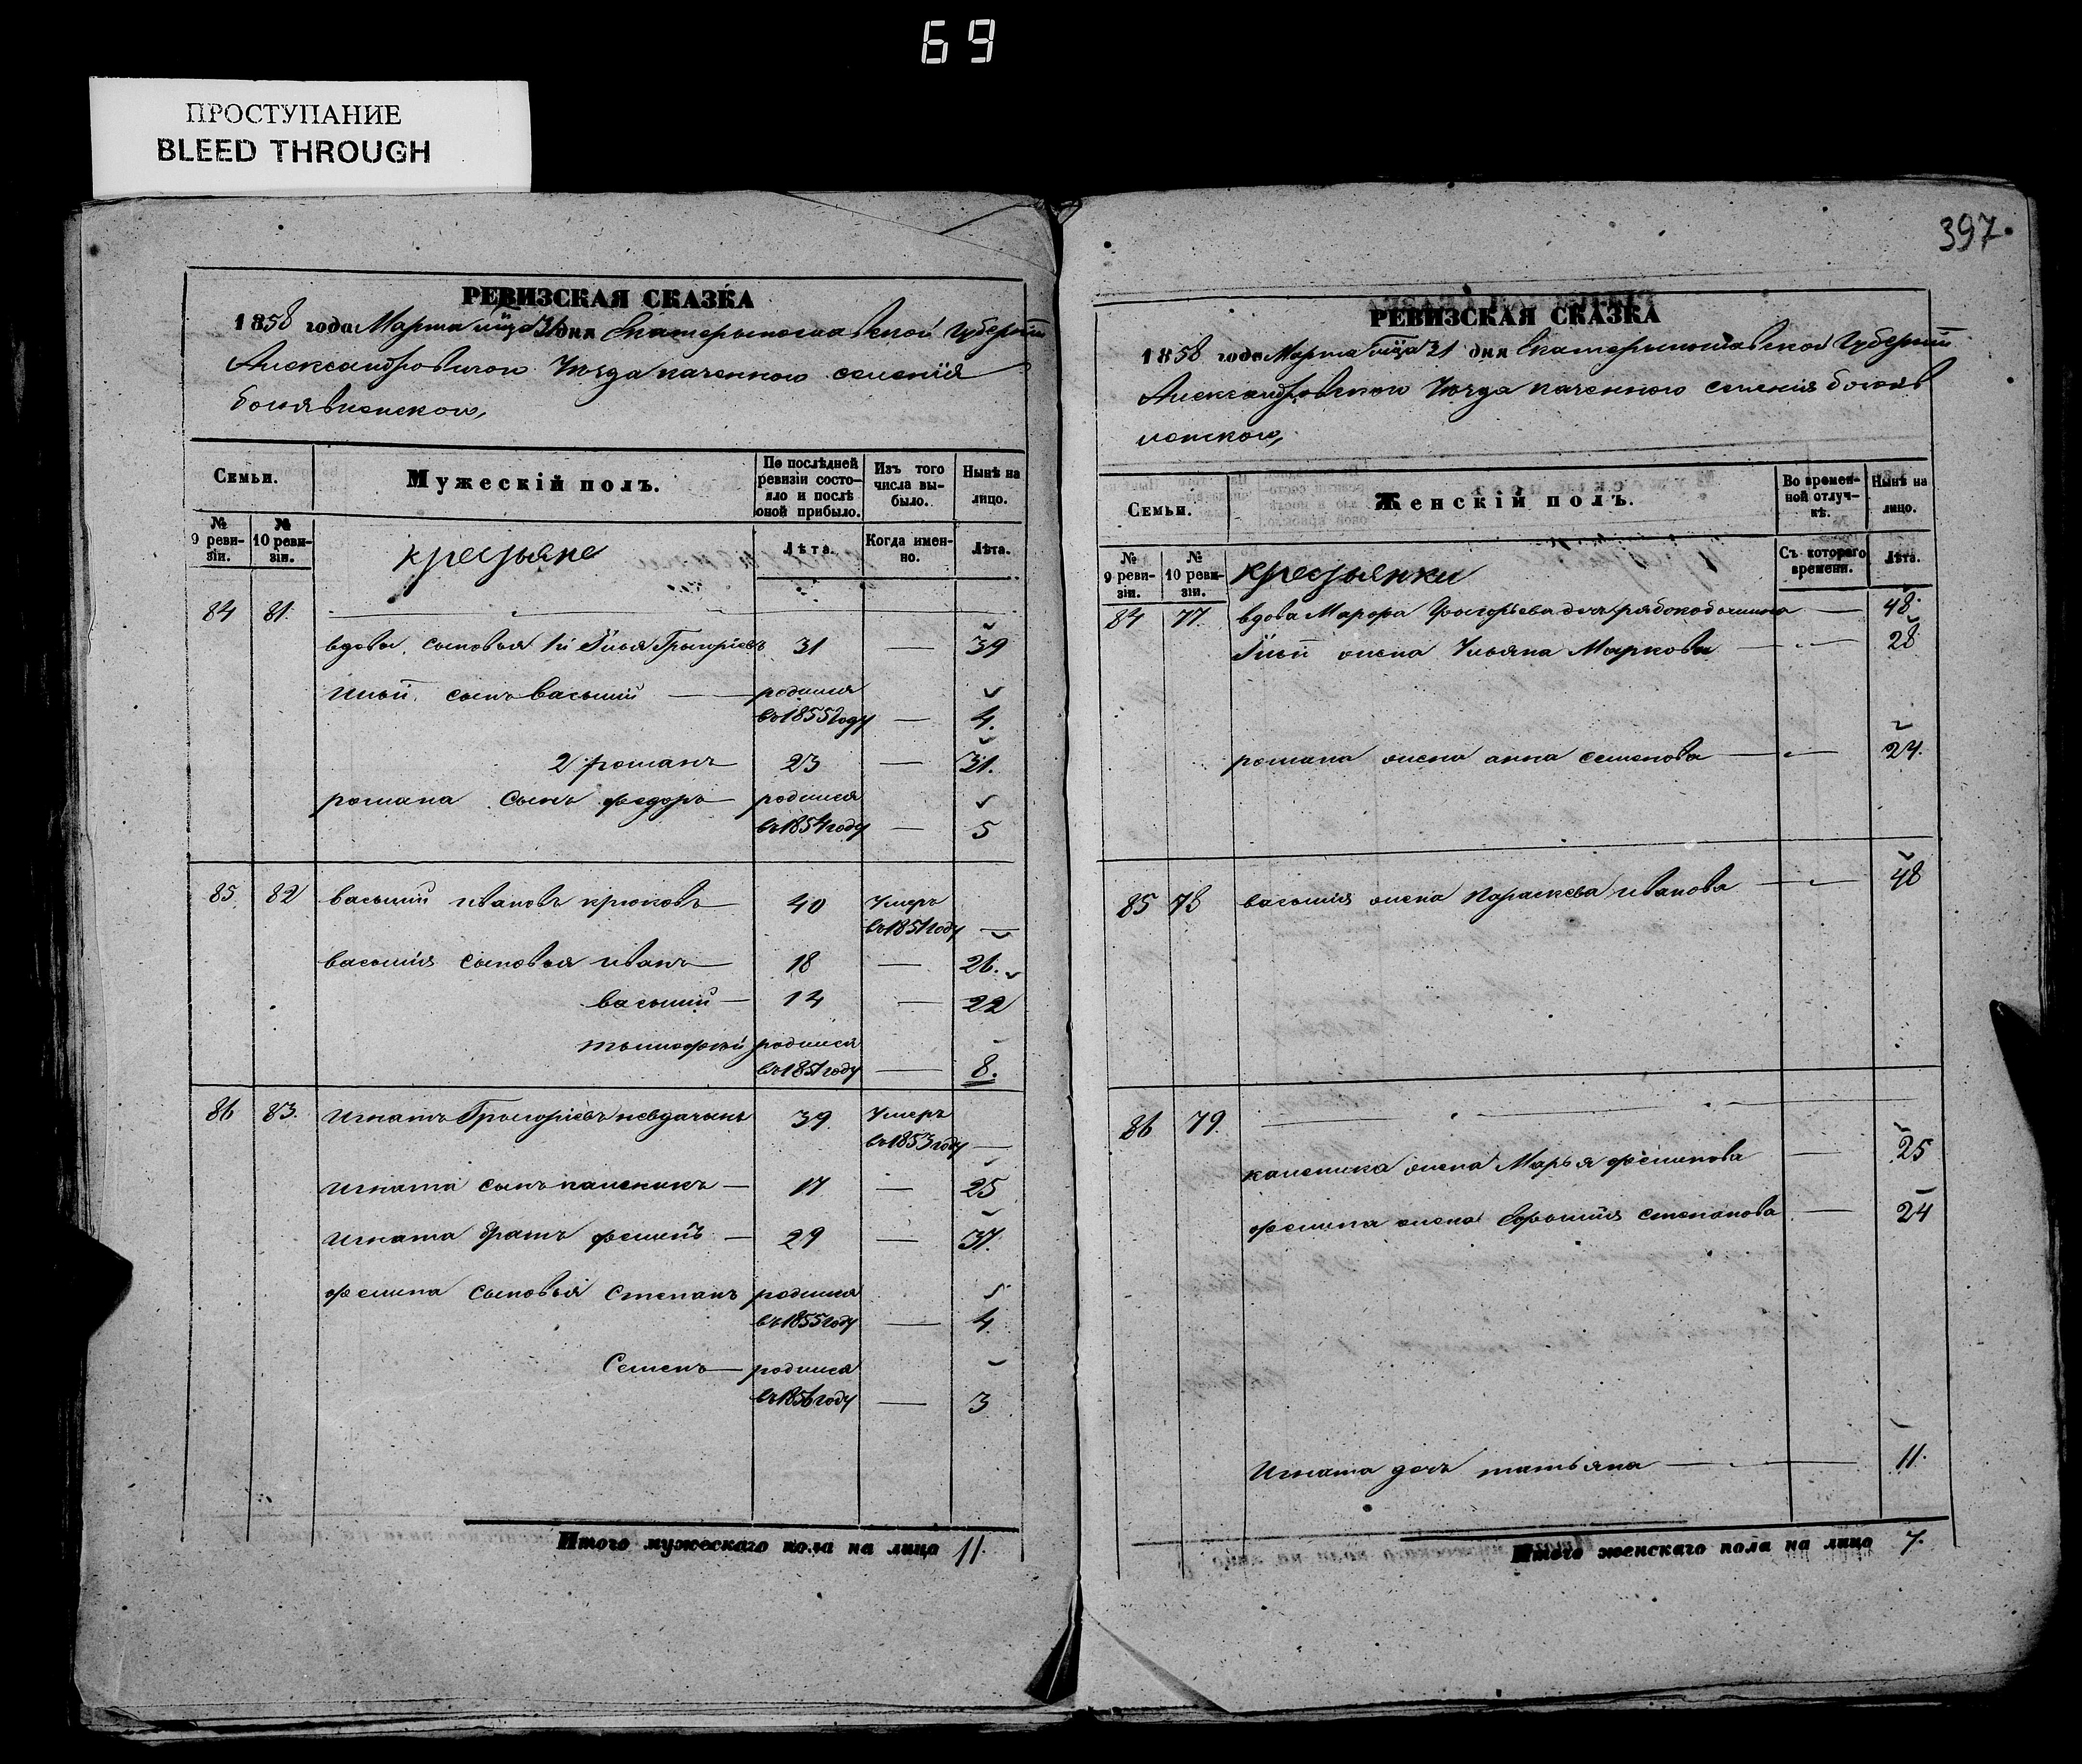 69
ПРОСТУПАНИЕ
BLEED THROUGH
РЕВИЗСКАЯ СКАЗКА
1858 года Марта м̃ца 31 дня Екатеринославской Губернiи
Александровского Уѣзда казенного селенiя
богоявленского,
Семьи.
Мужескiй полъ.
По послѣдней ревизiи состояло и послѣ оной прибыло.
Изъ того числа выбыло.
Нынѣ на лицо.
№ 9 ревизiи.
№ 10 ревизiи.
крестьяне
Лѣта.
Когда именно.
Лѣта.
84 81.
вдовы. сыновья 1й Илья Григорiевъ 31 — 39
Ильи. сынъ василiй — родился
въ 1855 году — 4.
2 романъ 23 — 31.
романа сынъ федоръ — родился
въ 1854 году — 5
85. 82 василiй ивановъ крюковъ — 40 Умеръ
въ 1851 году —
василiя сыновья иванъ — 18 — 26.
василiй — 14 — 22
тимофей родился
въ 1851 году — 8.
86 83. Игнатъ Григорiевъ 39 Умеръ
въ 1853 году —
Игната сынъ калекикъ — 17 — 25
Игната братъ — 29 — 37.
сыновья Степанъ родился
въ 1855 году — 4
Семенъ — родился
въ 1856 году — 3
Итого мужескаго пола на лицо 11.
397.
РЕВИЗСКАЯ СКАЗКА
1858 года Марта м̃ца 31 дня Екатеринославской Губернiи
Александровского Уѣзда казенного селенiя богояв
ленского,
Семьи.
Женскiй полъ.
Во временной отлучкѣ.
Нынѣ на лицо.
№ 9 ревизiи.
№ 10 ревизiи.
крестьянки
Съ котораго времени.
Лѣта.
84 77. вдова Марфа Григорьева — 48.
Ильи жена Ульяна Маркова — 28
романа жена анна семенова — 24.
85 78 василiя жена Параскева иванова — 48
86 79.
жена Марья — 25
жена Ефросинiя степанова — 24
Игната дочь татьяна — 11.
Итого женскаго пола на лицо 7.